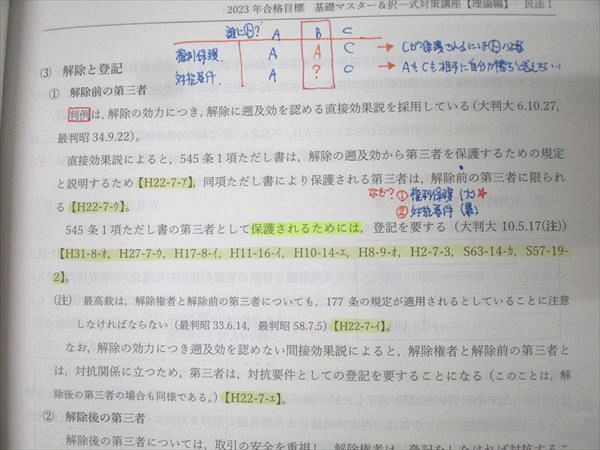 2023年合格目標 基礎マスター＆択一式対策講座【理論編】 民法Ⅰ
A B C
権利保護 A A C
対抗要件 A ? C
(3) 解除と登記
① 解除前の第三者
判例は，解除の効力につき，解除に遡及効を認める直接効果説を採用している（大判大 6.10.27，
最判昭 34.9.22）。
直接効果説によると，545 条 1 項ただし書は，解除の遡及効から第三者を保護するための規定
と説明するため【H22-7-7】，同項ただし書により保護される第三者は，解除前の第三者に限られ
る【H22-7-ｳ】。
① 権利保護（大）★
② 対抗要件（最）
545 条 1 項ただし書の第三者として保護されるためには，登記を要する（大判大 10.5.17(注)）
【H31-8-ｵ，H27-7-ｳ，H17-8-ｲ，H11-16-ｲ，H10-14-ｴ，H8-9-ｵ，H2-7-3，S63-14-ｶ，S57-19-
2】。
(注) 最高裁は，解除権者と解除前の第三者についても，177 条の規定が適用されるとしていることに注意
しなければならない（最判昭 33.6.14，最判昭 58.7.5）【H22-7-ｲ】。
なお，解除の効力につき遡及効を認めない間接効果説によると，解除権者と解除前の第三者と
は，対抗関係に立つため，第三者は，対抗要件としての登記を要することになる（このことは，解
除後の第三者の場合も同様である。）【H22-7-ｴ】。
② 解除後の第三者
解除後の第三者については，取引の安全を重視し，解除権者は，登記をしなければ対抗するこ